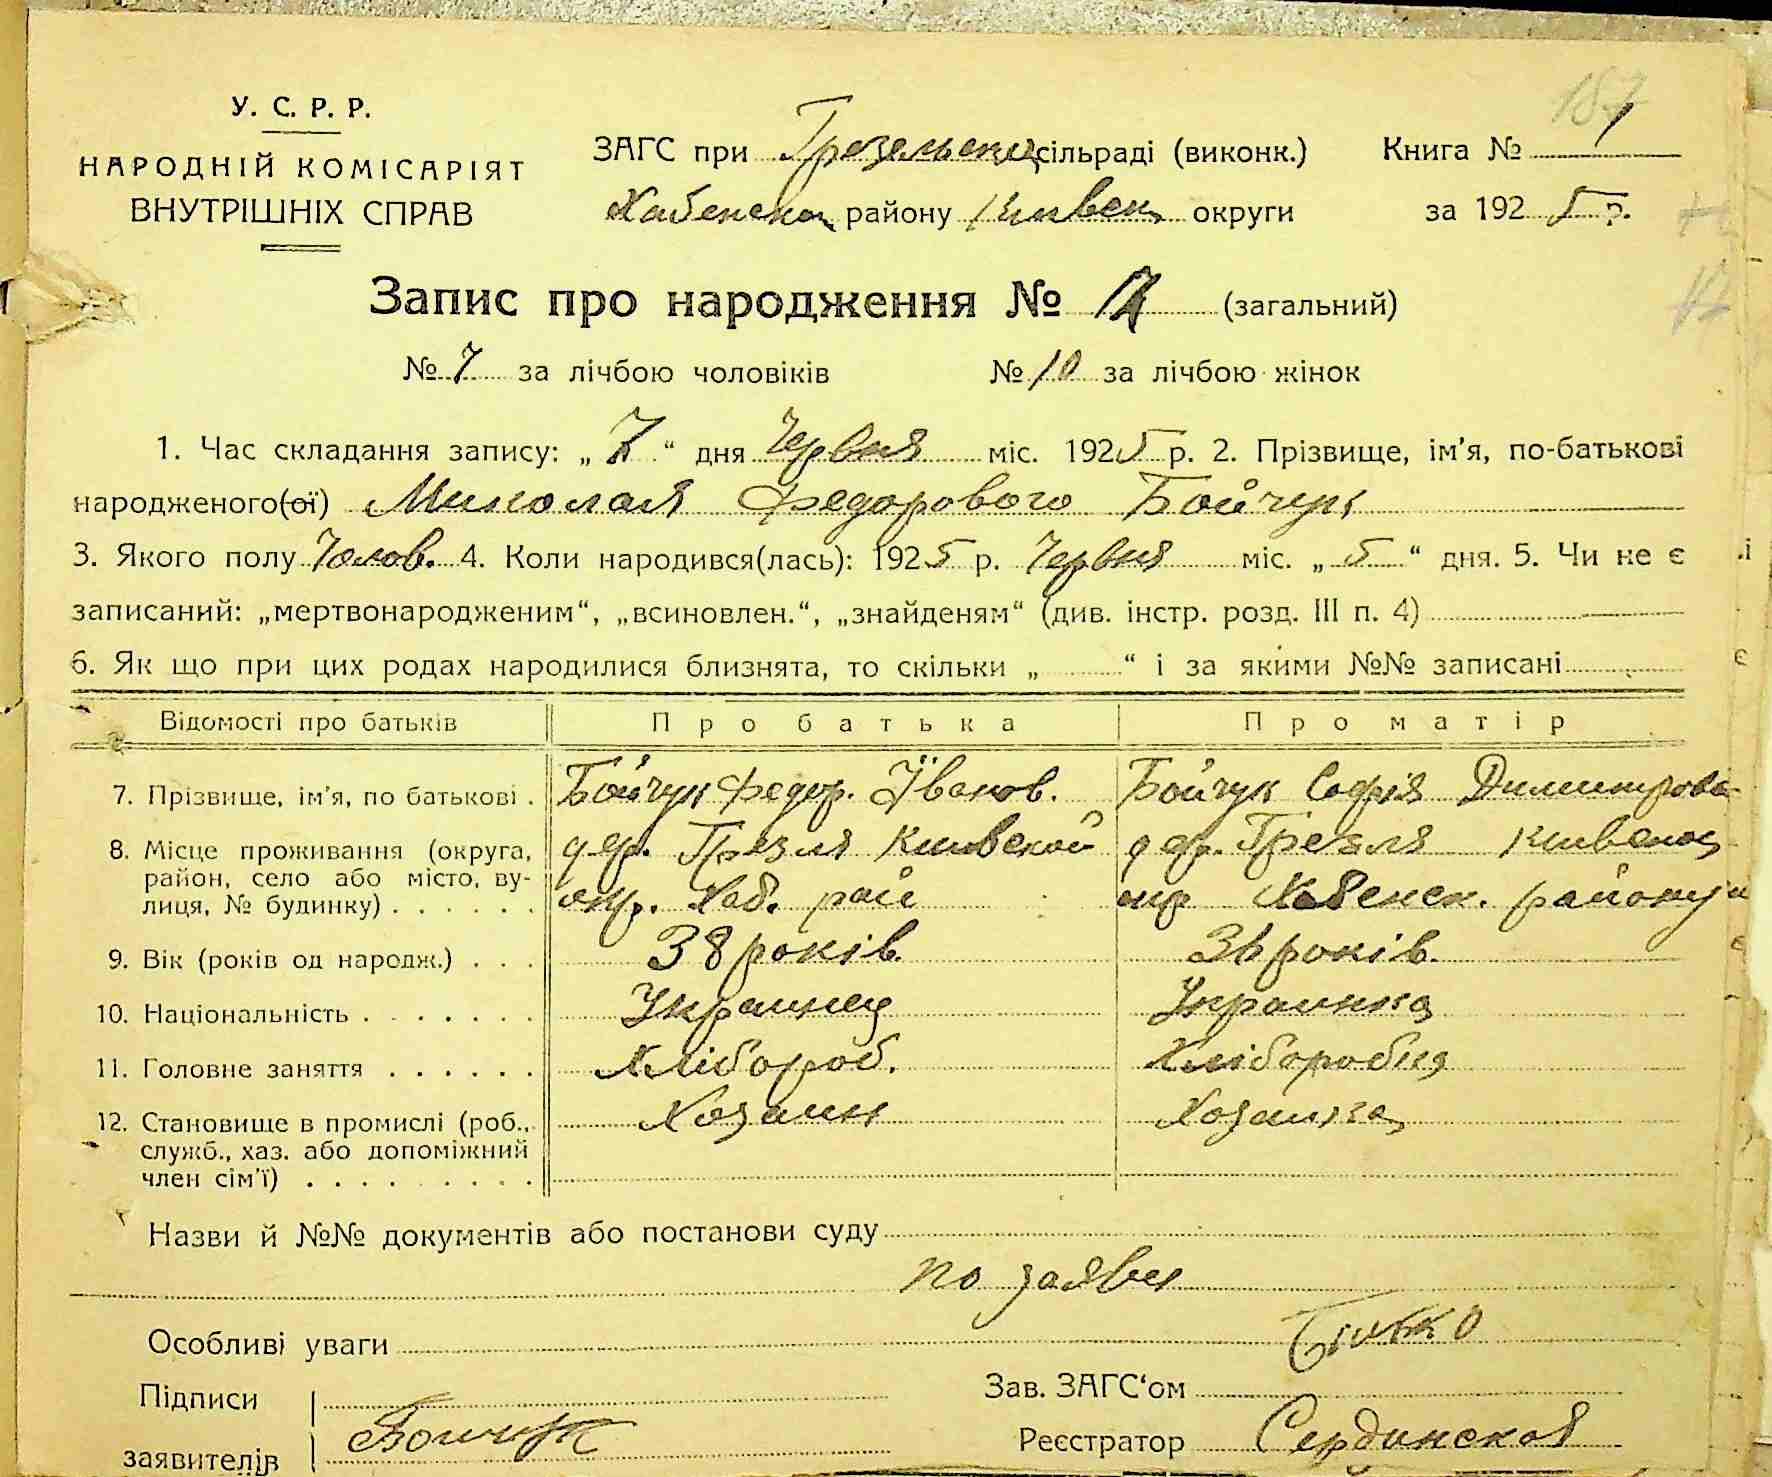 187
У. С. Р. Р.
НАРОДНІЙ КОМІСАРІЯТ
ВНУТРІШНІХ СПРАВ
ЗАГС при Грезельскій сільраді (виконк.) Книга № 1
Хабенск району Киевск округи за 1925 р.
Запис про народження № 17 (загальний)
№ 7 за лічбою чоловіків № 10 за лічбою жінок
1. Час складання запису: „7“ дня Червня міс. 1925 р. 2. Прізвище, ім'я, по-батькові
народженого(ої) Миколая Федорового Бойчук
3. Якого полу Чолов. 4. Коли народився(лась): 1925 р. Червня міс. „5“ дня. 5. Чи не є
записаний: „мертвонародженим“, „всиновлен.“, „знайденям“ (див. інстр. розд. III п. 4)
6. Як що при цих родах народилися близнята, то скільки „ “ і за якими №№ записані
Відомості про батьків Про батька Про матір
7. Прізвище, ім'я, по батькові . Бойчук Федор. Іванов. Бойчук Софія Димитрова
8. Місце проживання (округа, район, село або місто, вулиця, № будинку) . . . . . . дер. Грезля Киевской дер. Грезля Киевской
окр. Хаб. рай окр Хабенск. району
9. Вік (років од народж.) . . . 38 років. 36 років.
10. Національність . . . . . . . Украинец Украинка
11. Головне заняття . . . . . . Хлібороб. Хліборобка
12. Становище в промислі (роб., Хозаин Хозаика
служб., хаз. або допоміжний
член сім'ї) . . . . . . . . .
Назви й №№ документів або постанови суду
по заяви
Особливі уваги
Підписи
Зав. ЗАГС'ом
заявителів Бойчук
Реєстратор Сердинской